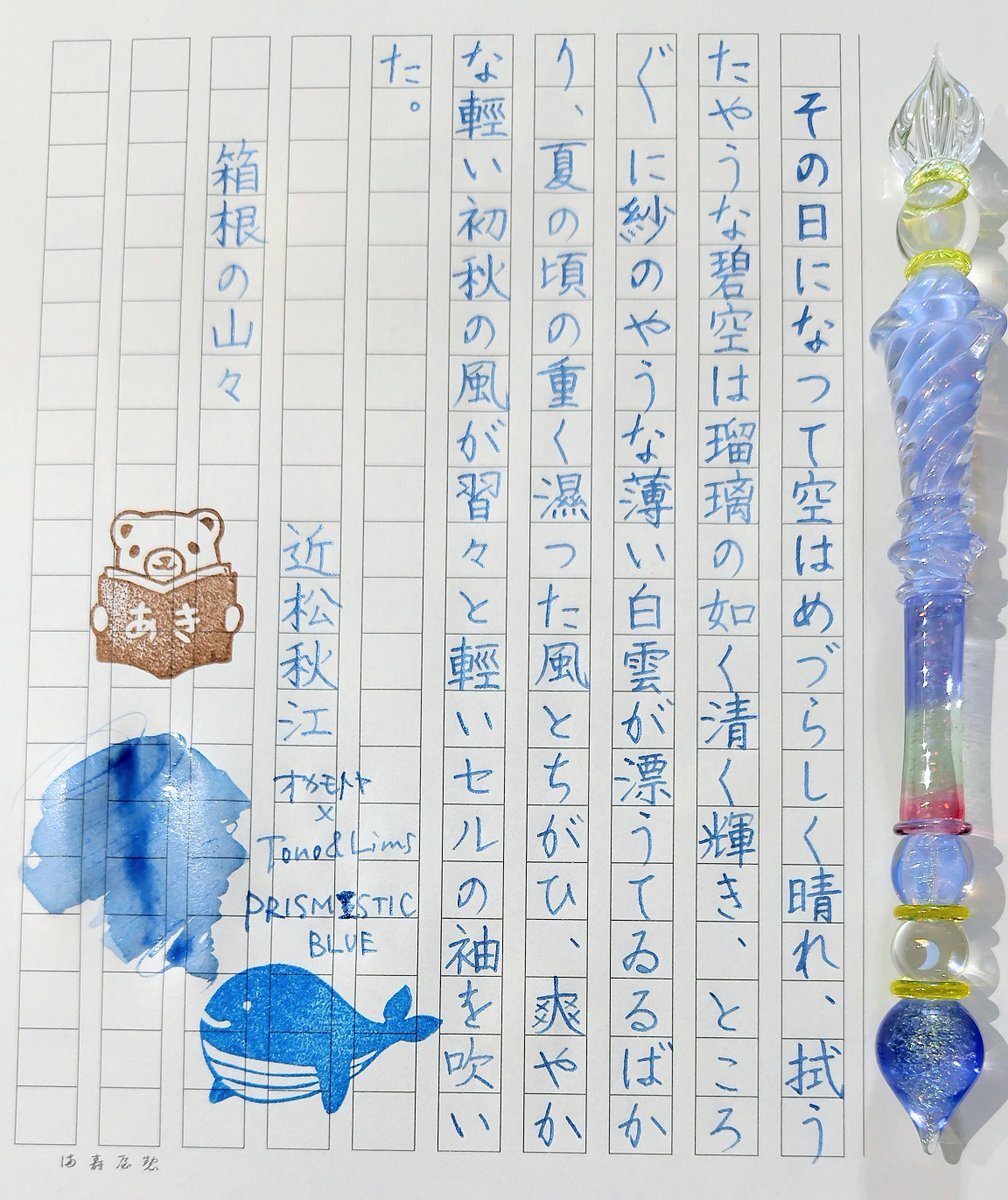 その日になつて空はめづらしく晴れ、拭う
たやうな碧空は瑠璃の如く清く輝き、ところ
〲に紗のやうな薄い白雲が漂うてゐるばか
り、夏の頃の重く濕つた風とちがひ、爽やか
な輕い初秋の風が習々と輕いセルの袖を吹い
た。
近松秋江
箱根の山々
あき
オカモトヤ
×
Tono&Lims
PRISMISTIC
BLUE
満寿屋製